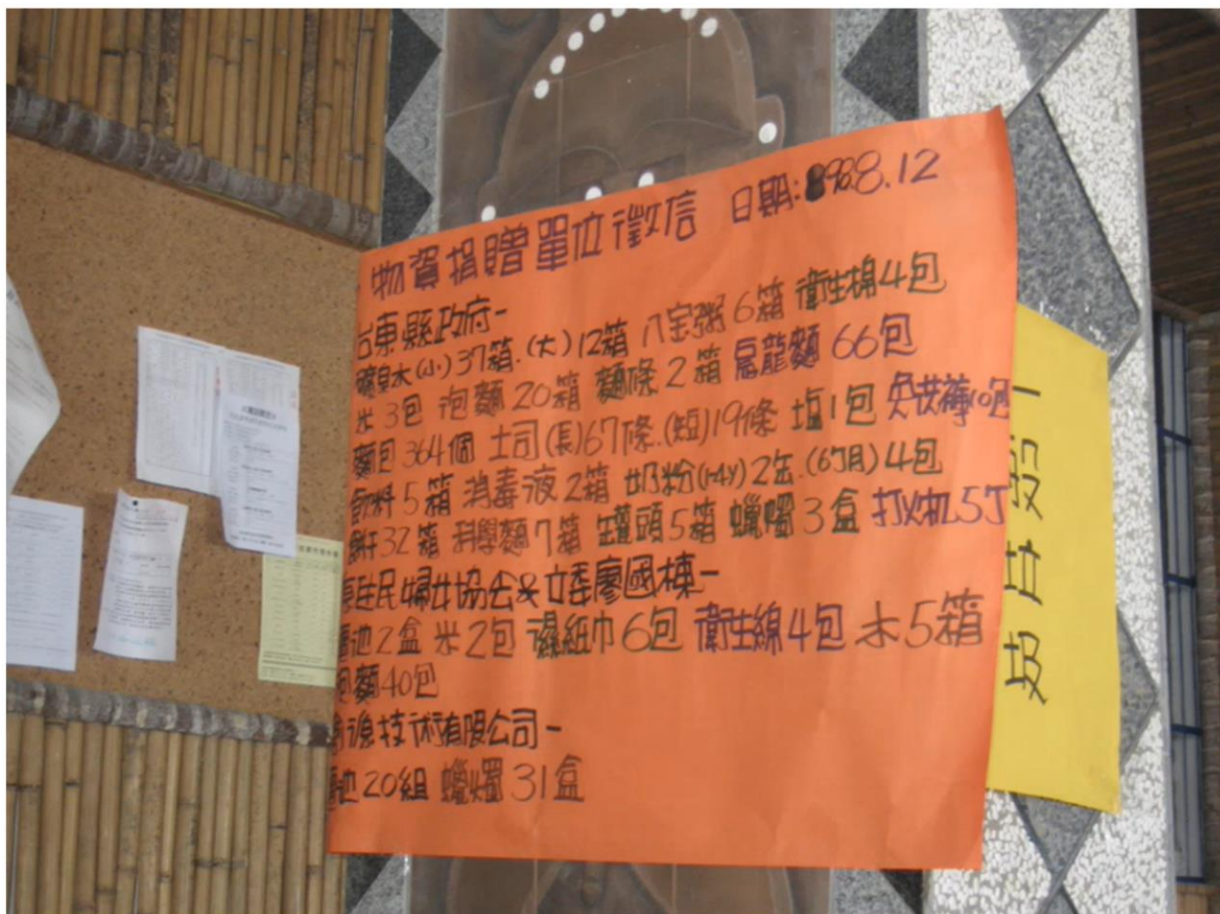 物資捐贈單位徵信 日期:98.8.12
台東縣政府-
礦泉水(小)37箱.(大)12箱 八宝粥6箱 衛生棉4包
米3包 泡麵20箱 麵條2箱 烏龍麵66包
麵包364個 土司(長)67條.(短)19條 塩1包 免洗褲10包
飲料5箱 消毒液2箱 奶粉(1-4y)2缶.(6個月)4包
餅干32箱 科學麵7箱 罐頭5箱 蠟燭3盒 打火机5丁
原住民婦女協会&立委廖國棟-
電池2盒 米2包 濕紙巾6包 衛生綿4包 水5箱
泡麵40包
源技術有限公司-
電池20組 蠟燭31盒
一般垃圾